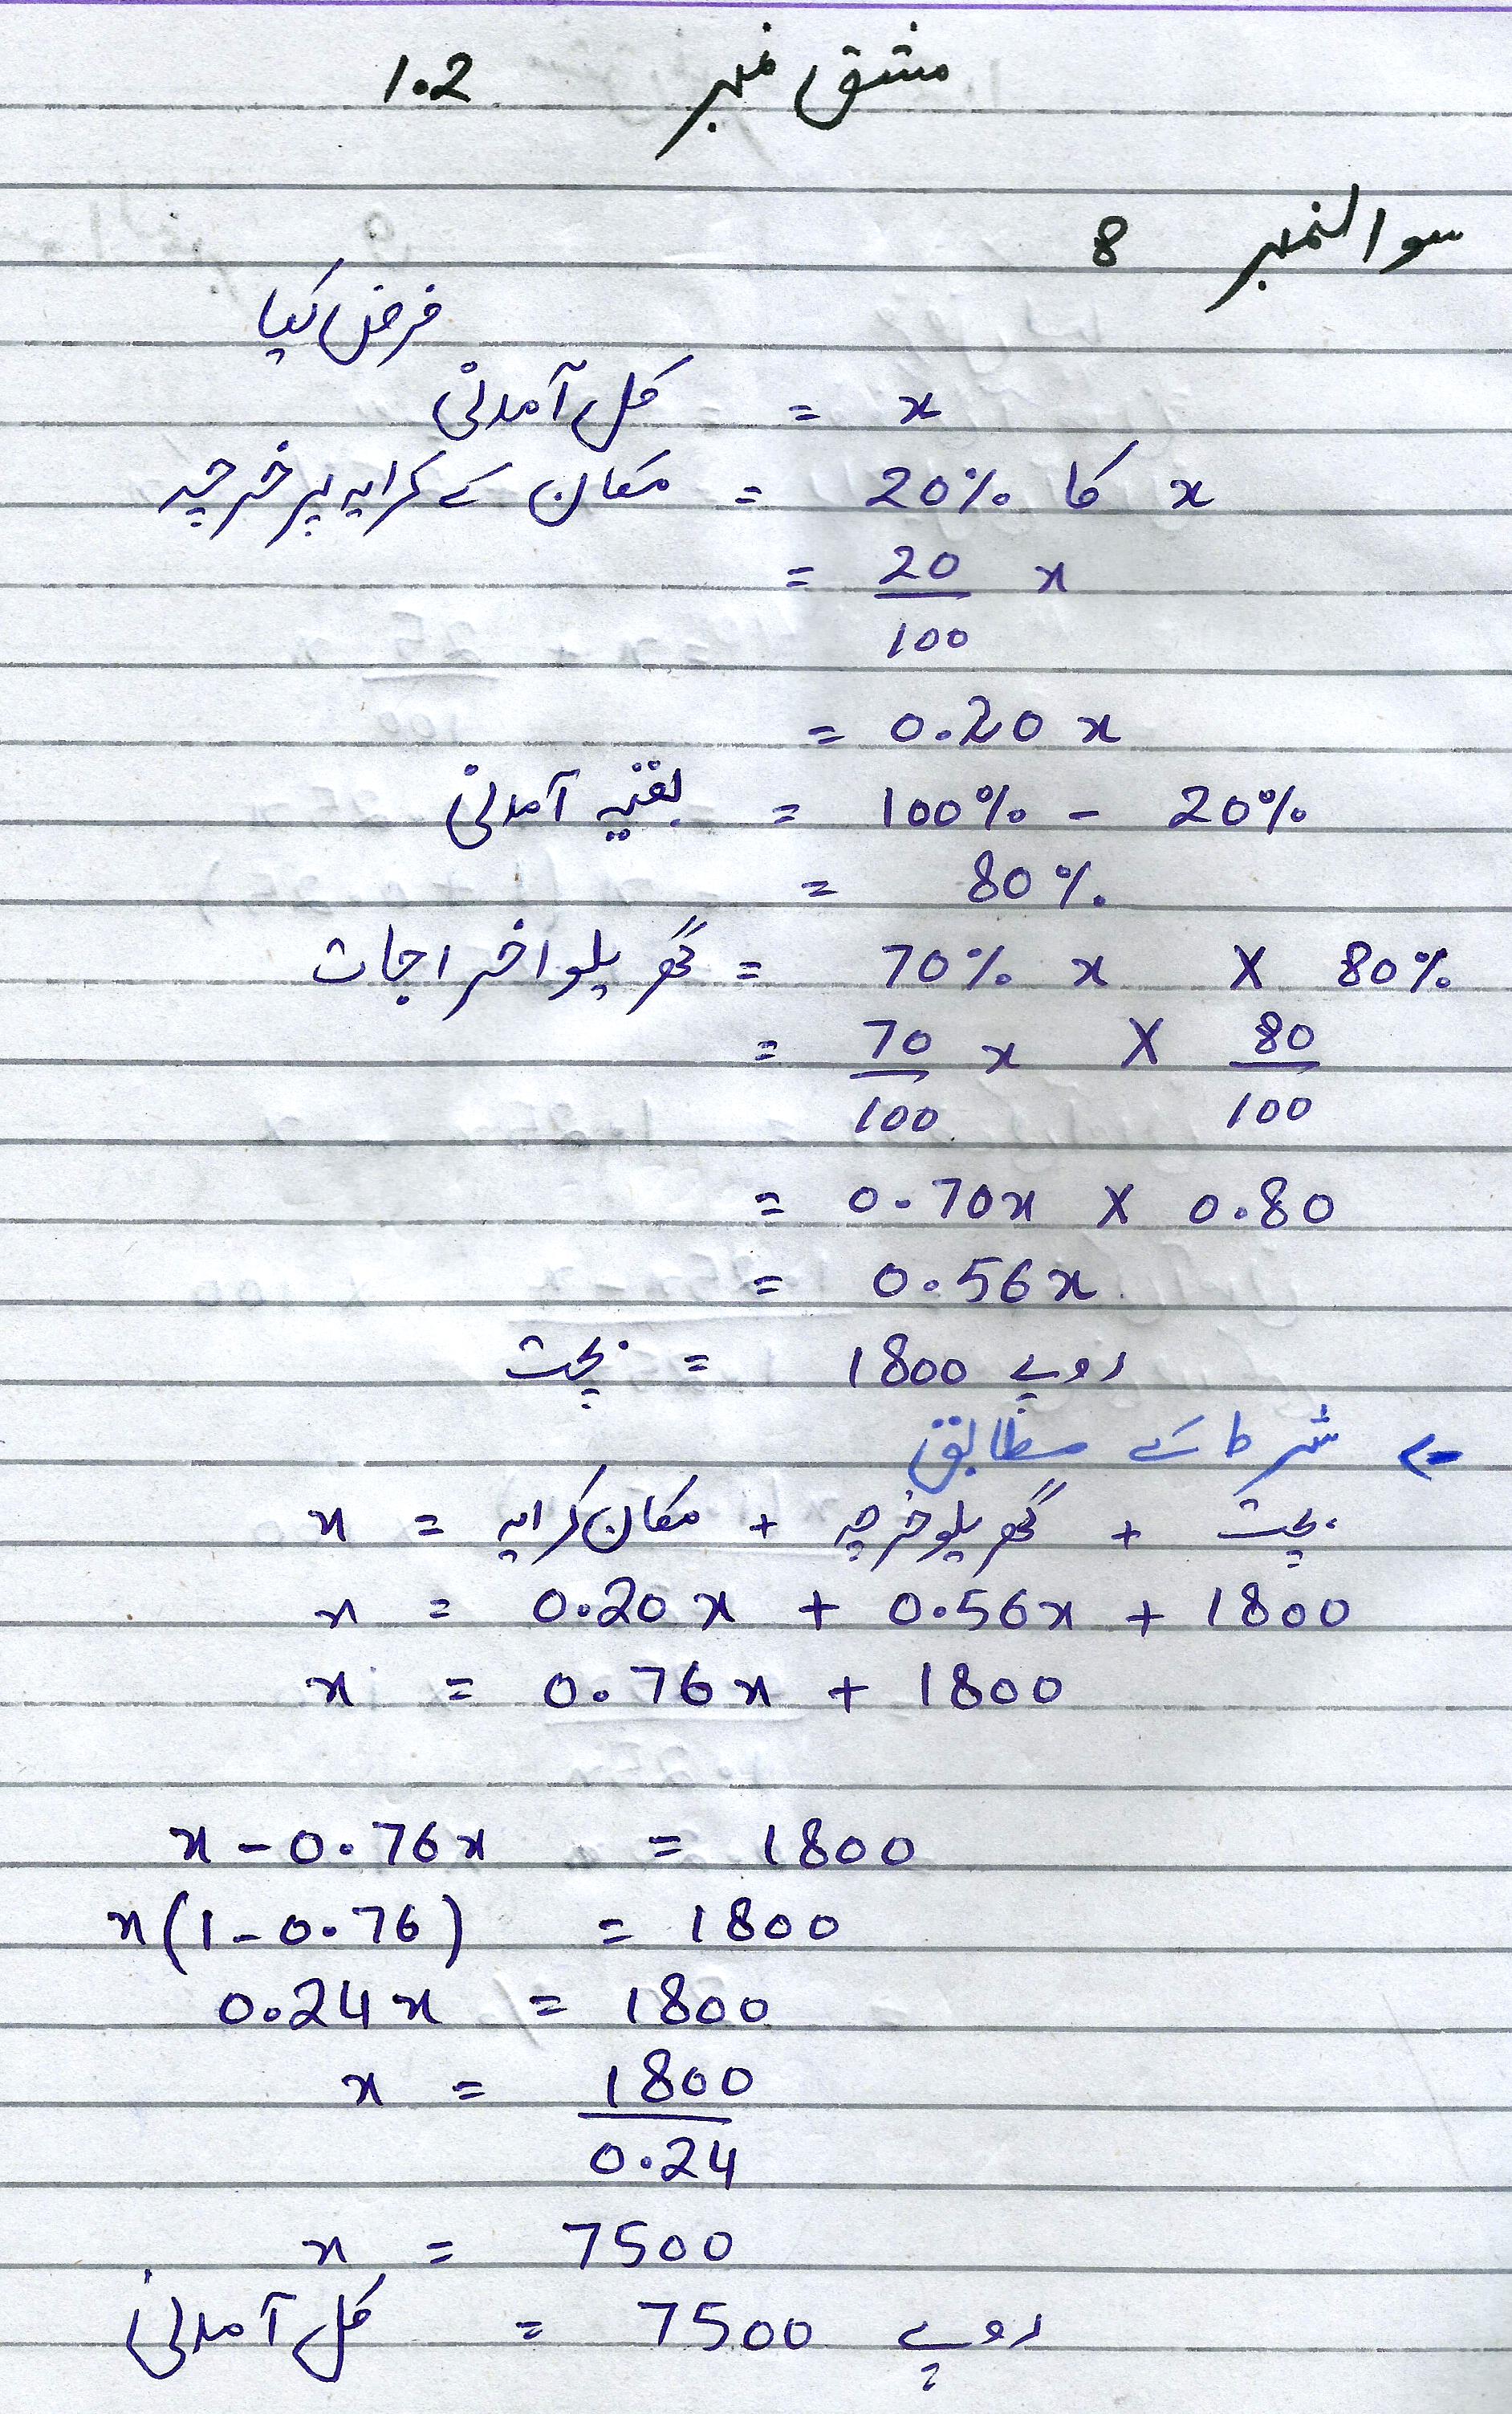 مشق نمبر 1.2
سوالنمبر 8
فرض کیا
کل آمدنی = x
مکان کے کرایہ پر خرچہ = 20% کا x
= 20/100 x
= 0.20 x
بقیہ آمدنی = 100% - 20%
= 80%
گھریلو اخراجات = 70% x X 80%
= 70/100 x X 80/100
= 0.70x X 0.80
= 0.56x
بچت = 1800 روپے
شرط کے مطابق
x = مکان کرایہ + گھریلو خرچہ + بچت
x = 0.20x + 0.56x + 1800
x = 0.76x + 1800
x - 0.76x = 1800
x(1 - 0.76) = 1800
0.24x = 1800
x = 1800/0.24
x = 7500
کل آمدنی = 7500 روپے